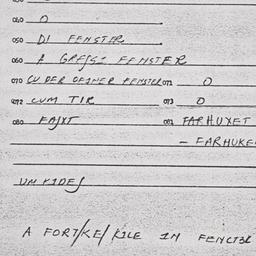 040 O
050 DI FENSTER
060 A GRESSI FENSTER
070 CU DER OFINER FENSTER 071 O
072 CUM TIR 073 O
080 FAJXT 081 FARHUXET
– FARHUKE
UM KIDES
A FORT/KE/KILE IM FENCTBE